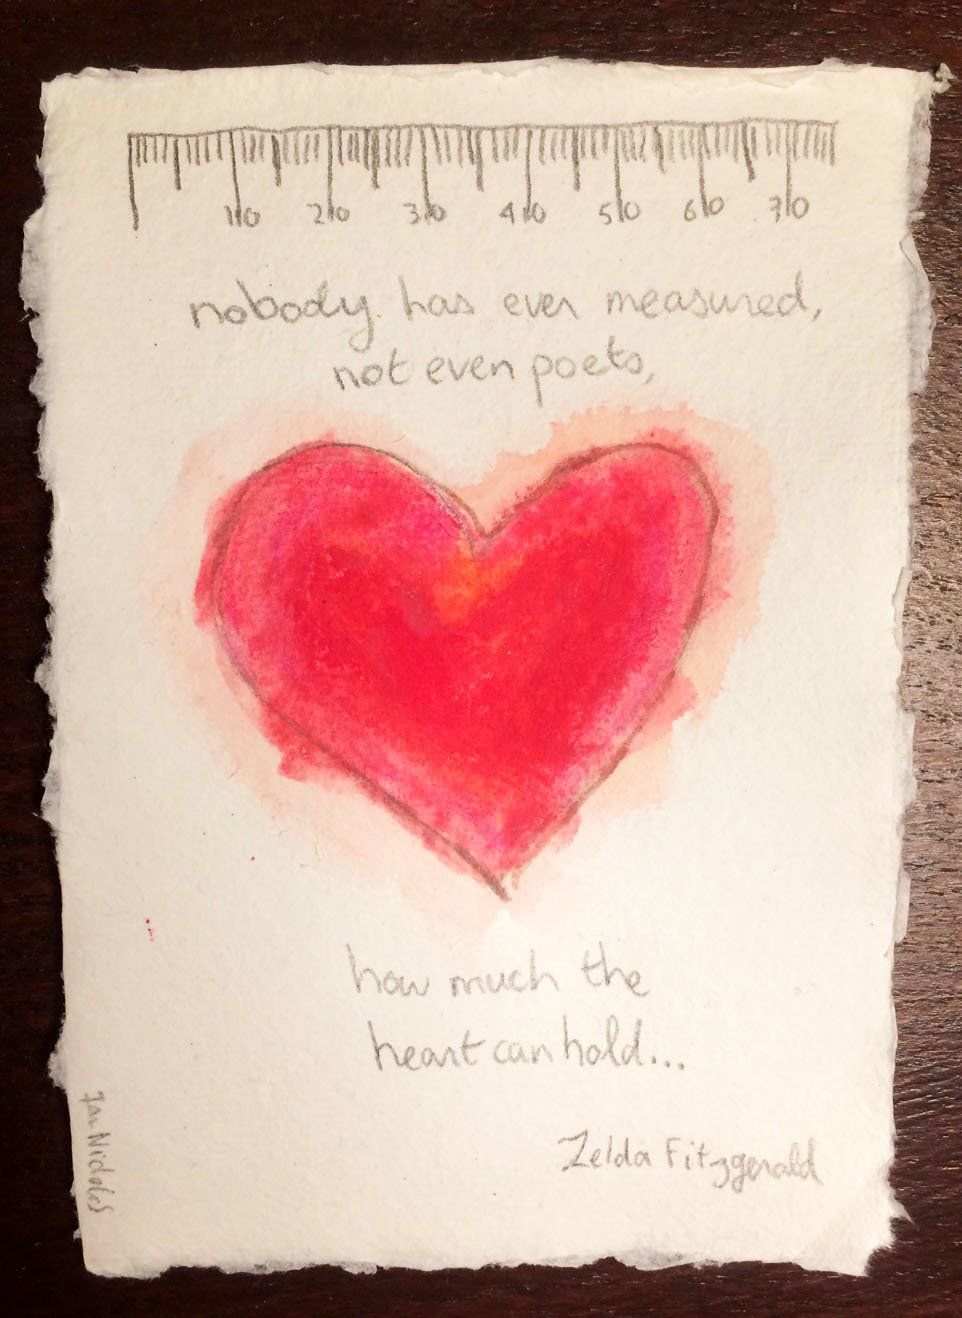 10 20 30 40 50 60 70
nobody has ever measured,
not even poets,
how much the
heart can hold...
Zelda Fitzgerald